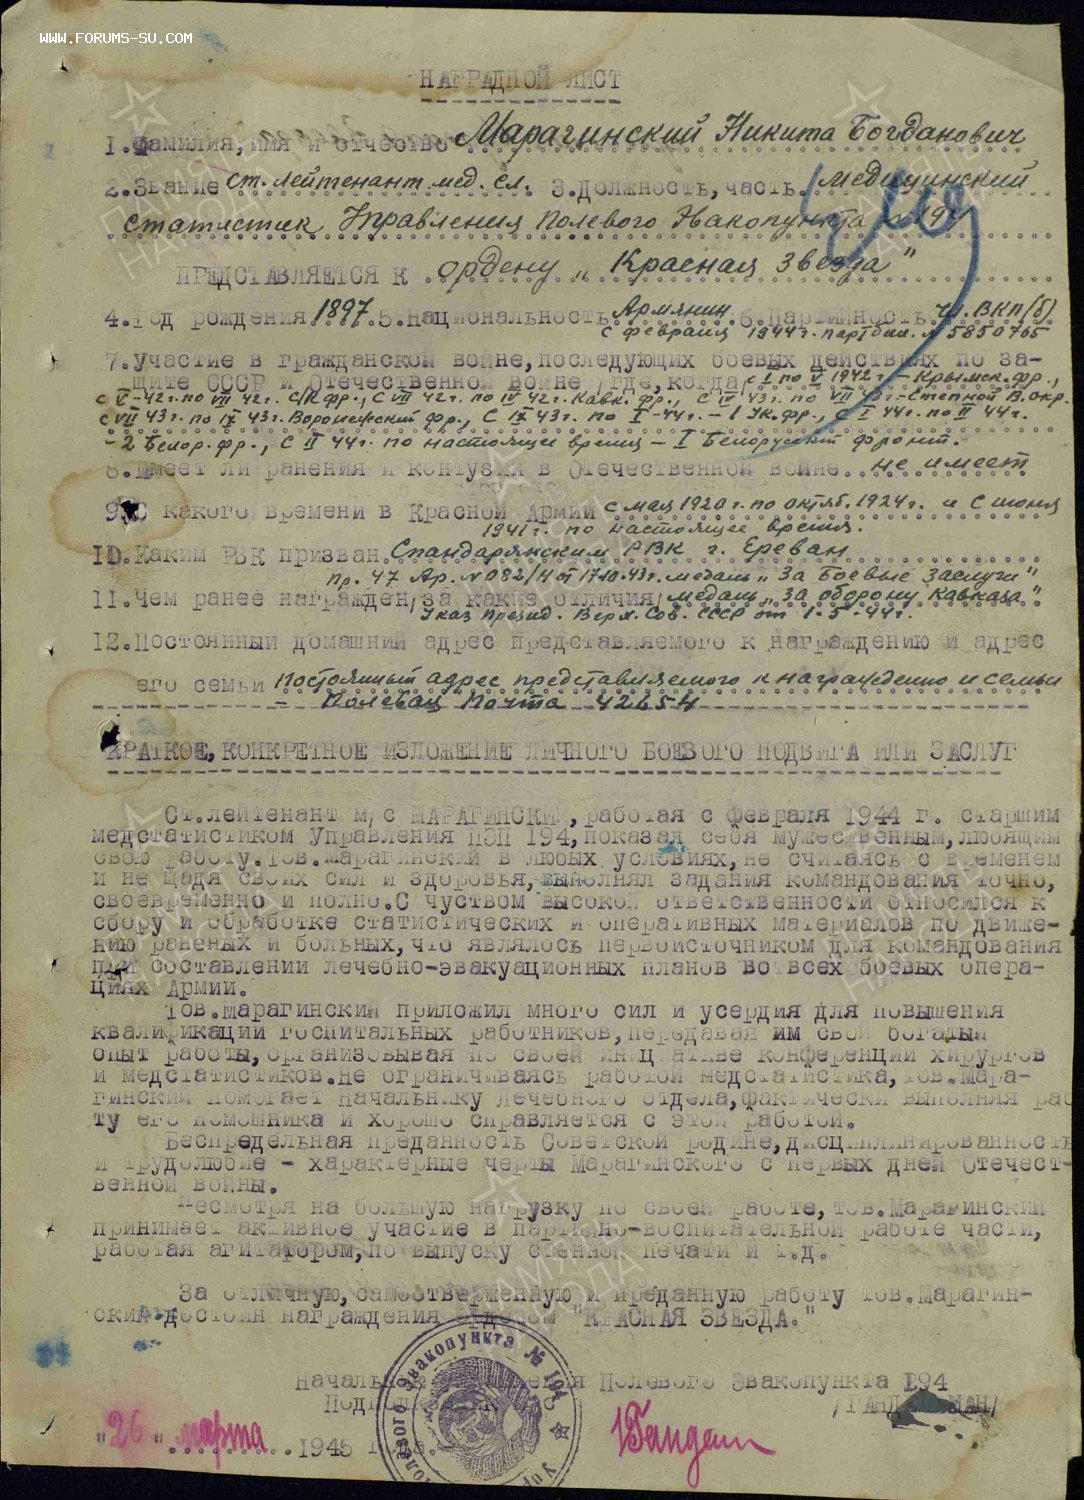 WWW.FORUMS-SU.COM
НАГРАДНОЙ ЛИСТ
1.Фамилия, имя и отчество Марагинский Никита Богданович
2.Звание ст. лейтенант мед. сл. 3.Должность, часть Медицинский
статистик Управления Полевого Эвакопункта 194
ПРЕДСТАВЛЯЕТСЯ К ордену „Красная Звезда"
4.Год рождения 1897 5.Национальность Армянин 6.Партийность Чл. ВКП(б)
с февраля 1944 г. партбил. № 5850765
7.Участие в гражданской войне, последующих боевых действиях по за-
щите СССР и Отечественной войне /где, когда/ с I по V 1942 г. – Крымск. фр.,
с V-42 г. по VII 42 г. С/К фр., С VII 42 г. по IV 42 г. Кавк. фр., С IV 43 г. по VII 43 г.-Степной В. Окр.
с VII 43 г. по IX 43 г. Воронежский фр., С IX 43 г. по I-44 г. – 1 Ук. фр., С I 44 г. по II 44 г.
– 2 Белор. фр., С II 44 г. по настоящее время – I Белорусский фронт.
8.Имеет ли ранения и контузии в Отечественной войне не имеет
9.С какого времени в Красной Армии с мая 1920 г. по октяб. 1924 г. и с июня
1941 г. по настоящее время.
10.Каким РВК призван Спандарянским РВК г. Ереван
Пр. 47 Ар. № 082/Н от 17.10.43 г. медаль „За Боевые Заслуги"
11.Чем ранее награжден/за какие отличия/ медаль „За оборону Кавказа"
Указ Презид. Верх. Сов. СССР от 1-5-44 г.
12.Постоянный домашний адрес представляемого к награждению и адрес
его семьи Постоянный адрес представляемого к награждению и семьи
– Полевая Почта 42654
КРАТКОЕ, КОНКРЕТНОЕ ИЗЛОЖЕНИЕ ЛИЧНОГО БОЕВОГО ПОДВИГА ИЛИ ЗАСЛУГ
Ст.лейтенант м/с МАРАГИНСКИЙ, работая с февраля 1944 г. старшим
медстатистиком Управления ПЭП 194, показал себя мужественным, любящим
свою работу. Тов. Марагинский в любых условиях, не считаясь с временем
и не щадя своих сил и здоровья, выполнял задания командования точно,
своевременно и полно. С чуством высокой ответственности относился к
сбору и обработке статистических и оперативных материалов по движе-
нию раненых и больных, что являлось первоисточником для командования
при составлении лечебно-эвакуационных планов во всех боевых опера-
циях Армии.
Тов. Марагинский приложил много сил и усердия для повышения
квалификации госпитальных работников, передавая им свой богатый
опыт работы, организовывая по своей инициативе конференции хирургов
и медстатистиков. Не ограничиваясь работой медстатистика, тов. Мара-
гинский помогает Начальнику Лечебного отдела, фактически выполняя рабо
ту его помошника и хорошо справляется с этой работой.
Беспредельная преданность Советской родине, дисциплинированность
и трудолюбие – характерные черты Марагинского с первых дней Отечест-
венной войны.
Несмотря на большую нагрузку по своей работе, тов. Марагинский
принимает активное участие в партийно-воспитательной работе части,
работая агитатором, по выпуску стенной печати и т.д.
За отличную, самоотверженную и преданную работу тов. Марагин-
ский достоин награждения орденом "КРАСНАЯ ЗВЕЗДА."
Начальник Управления Полевого Эвакопункта 194
Подполковник
"26" марта 1945 г.
Полевого Эвакопункта № 194